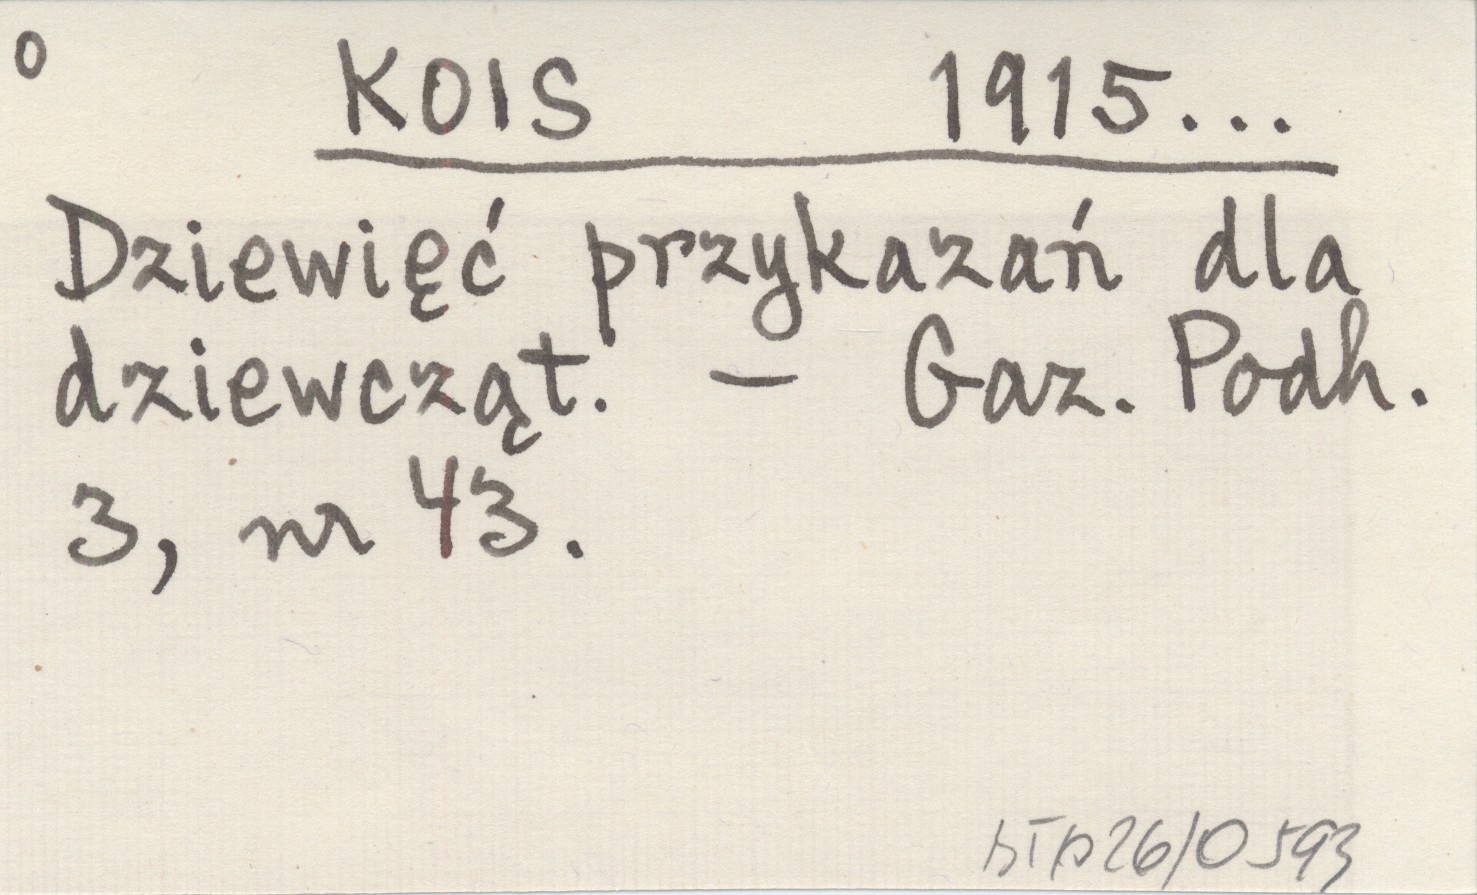 o KOIS 1915...
Dziewięć przykazań dla
dziewcząt. — Gaz. Podh.
3, nr 43.
bTp26/0593